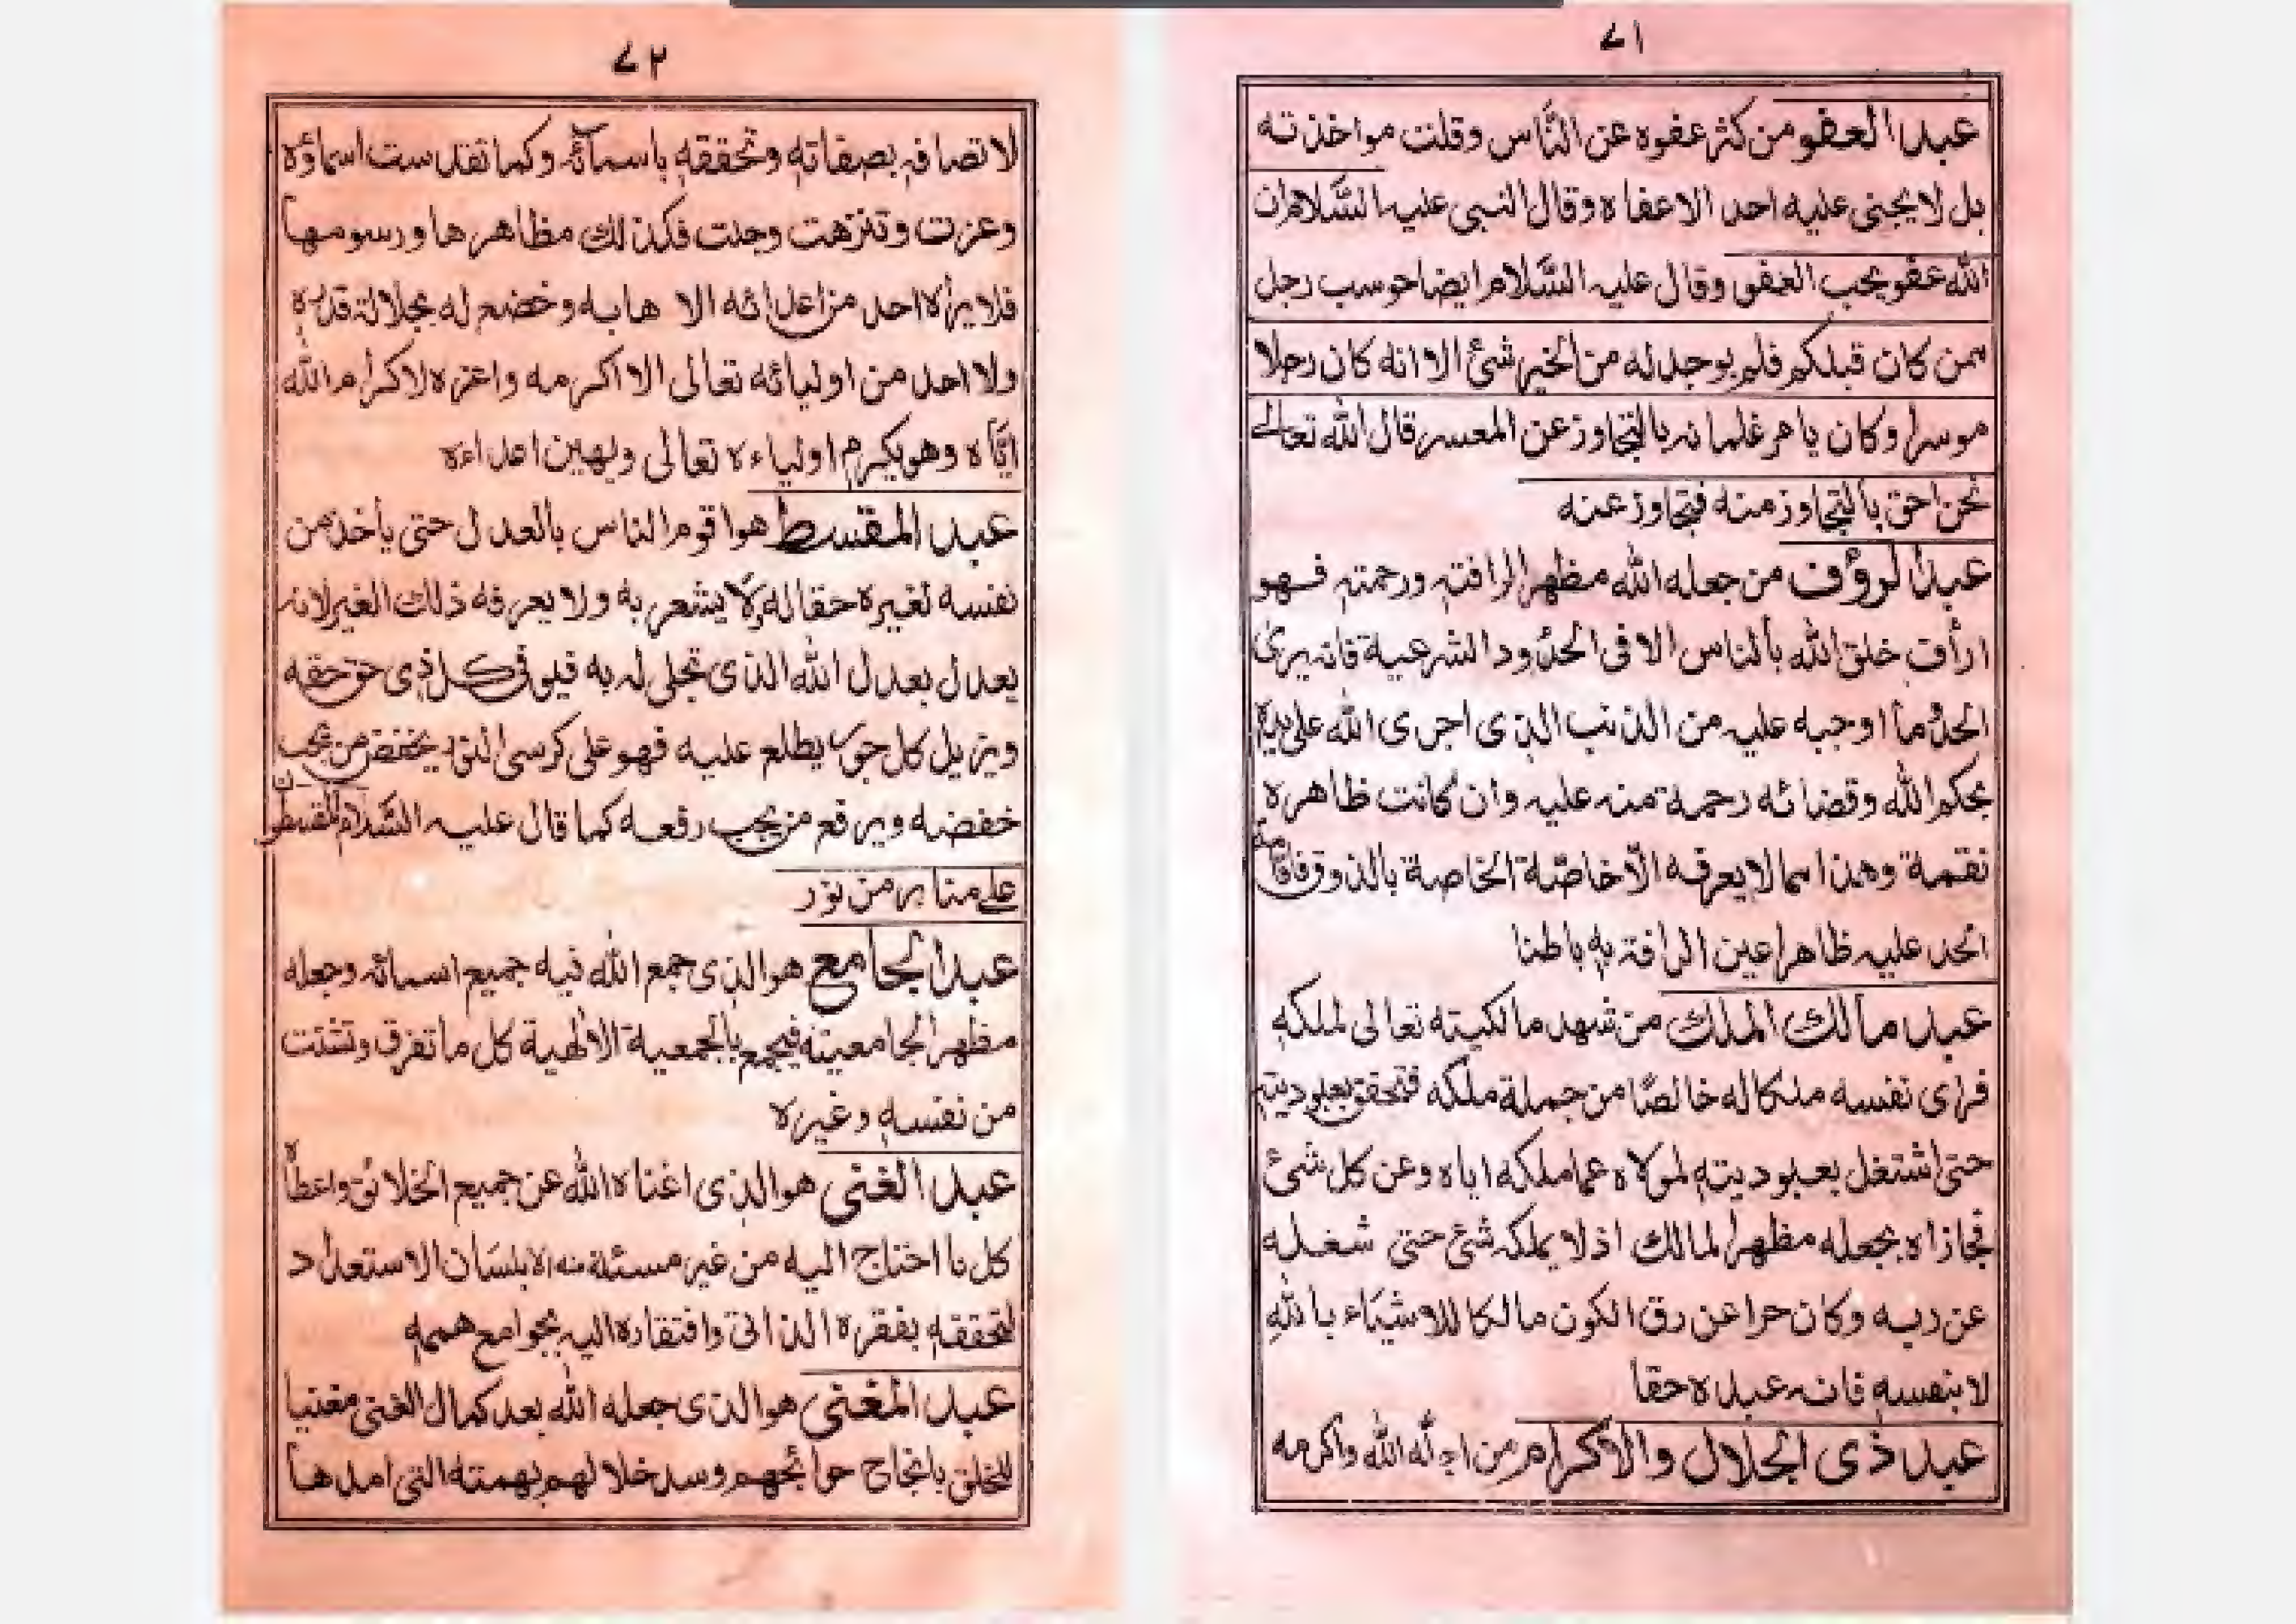 ٧١
عبد العفو من كثر عفوه عن النّاس وقلت مواخذته
بل لا يجنى عليه احد الا عفاه وقال النبى عليه السّلام ان
الله عفو يحب العفو وقال عليه السّلام ايضا حوسب رجل
ممن كان قبلكم فلم يوجد له من الخير شئ الا انه كان رجلا
موسرا وكان يامر غلمانه بالتجاوز عن المعسر قال الله تعالى
نحن احق بالتجاوز منه فتجاوز عنه
عبد الرؤف من جعله الله مظهر الرافته ورحمته فهو
ارأف خلق الله بالناس الا فى الحدود الشرعية فانه يرى
الحد وما اوجبه عليه من الذنب الذى اجرى الله على يده
بحكم الله وقضائه رحمة منه عليه وان كانت ظاهره
نقمة وهذا مما لا يعرفه الّا خاصّة الخاصة بالذوق فاقامة
الحد عليه ظاهرا عين الرافة به باطنا
عبد مالك الملك من شهد مالكيته تعالى لملكه
فراى نفسه ملكا له خالصًا من جملة ملكه فتحقق بعبوديته
حتى اشتغل بعبوديته لمولاه عما ملكه اياه وعن كل شئ
فجازاه بجعله مظهرا لمالك اذ لا يملكه شئ حتى شغله
عن ربه وكان حرا عن رق الكون مالكا للاشياء بالله
لا بنفسه فانه عبده حقا
عبد ذى الجلال والاكرام من اجلّه الله واكرمه
٧٢
لاتصافه بصفاته وتحققه باسمآئه وكما تقدست اسماؤه
وعزت وتنزهت وجلت فكذلك مظاهرها ورسومها
فلا يراه احد من اعدائه الا هابه وخضع له بجلالة قدره
ولا احد من اوليائه تعالى الا اكرمه واعزه لاكرام الله
ايّاه وهو يكرم اولياءه تعالى ويهين اعداءه
عبد المقسط هو اقوم الناس بالعدل حتى يأخذ من
نفسه لغيره حقا له لا يشعر به ولا يعرفه ذلك الغير لانه
يعدل بعدل الله الذى تجلى له به فيوفى كل ذى حق حقه
ويزيل كل جور يطلع عليه فهو على كرسى النور يخفض من يجب
خفضه ويرفع من يجب رفعه كما قال عليه السّلام المقسطون
على منابر من نور
عبد الجامع هو الذى جمع الله فيه جميع اسمائه وجعله
مظهر الجامعيته فيجمع بالجمعية الالهية كل ما تفرق وتشتت
من نفسه وغيره
عبد الغنى هو الذى اغناه الله عن جميع الخلائق واعطاه
كل ما احتاج اليه من غير مسئلة منه الا بلسان الاستعداد
لتحققه بفقره الذاتى وافتقاره اليه بجوامع هممه
عبد المغنى هو الذى جعله الله بعد كمال الغنى مغنيا
للخلق بانجاح حوائجهم وسد خلالهم بهمته التى امدها